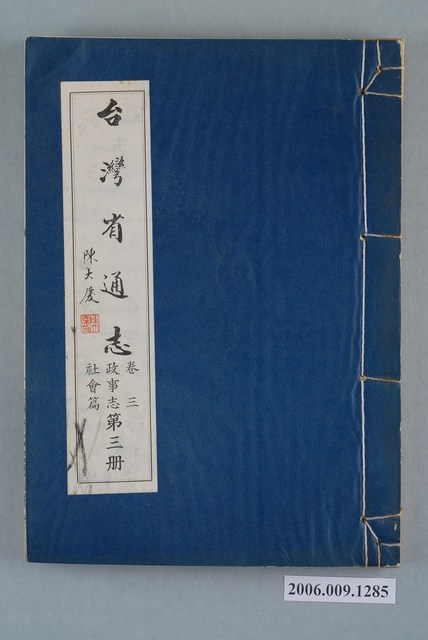 台灣省通志
陳大慶
卷三
政事志
社會篇
第三册
2006.009.1285